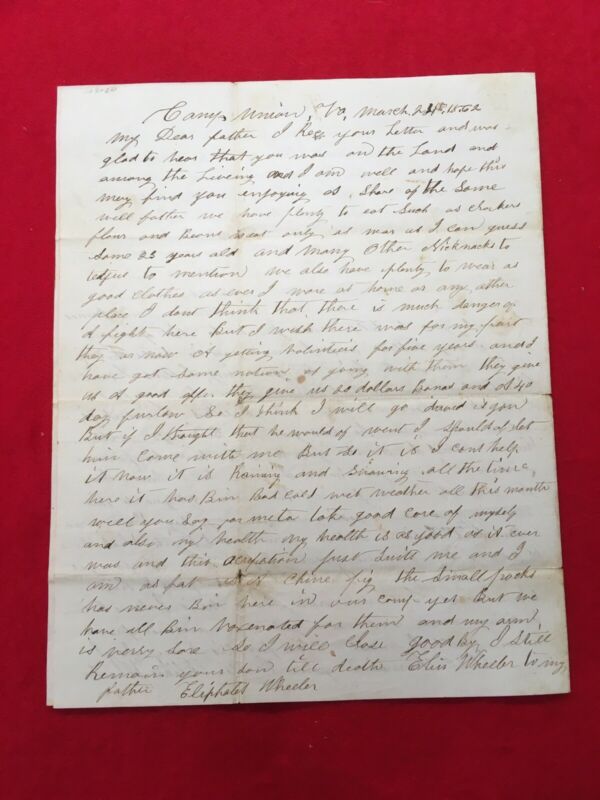 Camp Union, Va, March 24th 1862
My Dear father I Rec your Letter and was
glad to hear that you was on the Land and
among the Liveing and I am well and hope this
may find you enjoying A Share of the Same
well father we have plenty to eat Such as crackers
flour and Beans meat only as near as I can guess
Some 23 years old and many Other Nicknacks to
to mention we also have plenty to wear as
good clothes as ever I wore at home or any other
place I dont think that there is much danger of
A fight here But I wish there was for my part
they are now A getting volunteers for five years and I
have got Some notion of going with them they give
us A good offer they give us dollars Bonas and A 40
day furlow So I think I will go
But if I thought that he would of went I Should of let
him Come with me But So it is I cant help
it now it is Raining and Snowing all the time
here it has Bin Bad cold wet weather all this month
well you Say for me to take good care of myself
and also my health my health is as good as it ever
was and this ocupation just Suits me and I
am as fat as A Chine pig the Small pocks
has never Bin here in our camp yet But we
have all Bin vaxenated for them and my arm
is verry Sore So I will Close good By I Still
Remain your Son till death Wheeler to my
father Eliphalet Wheeler